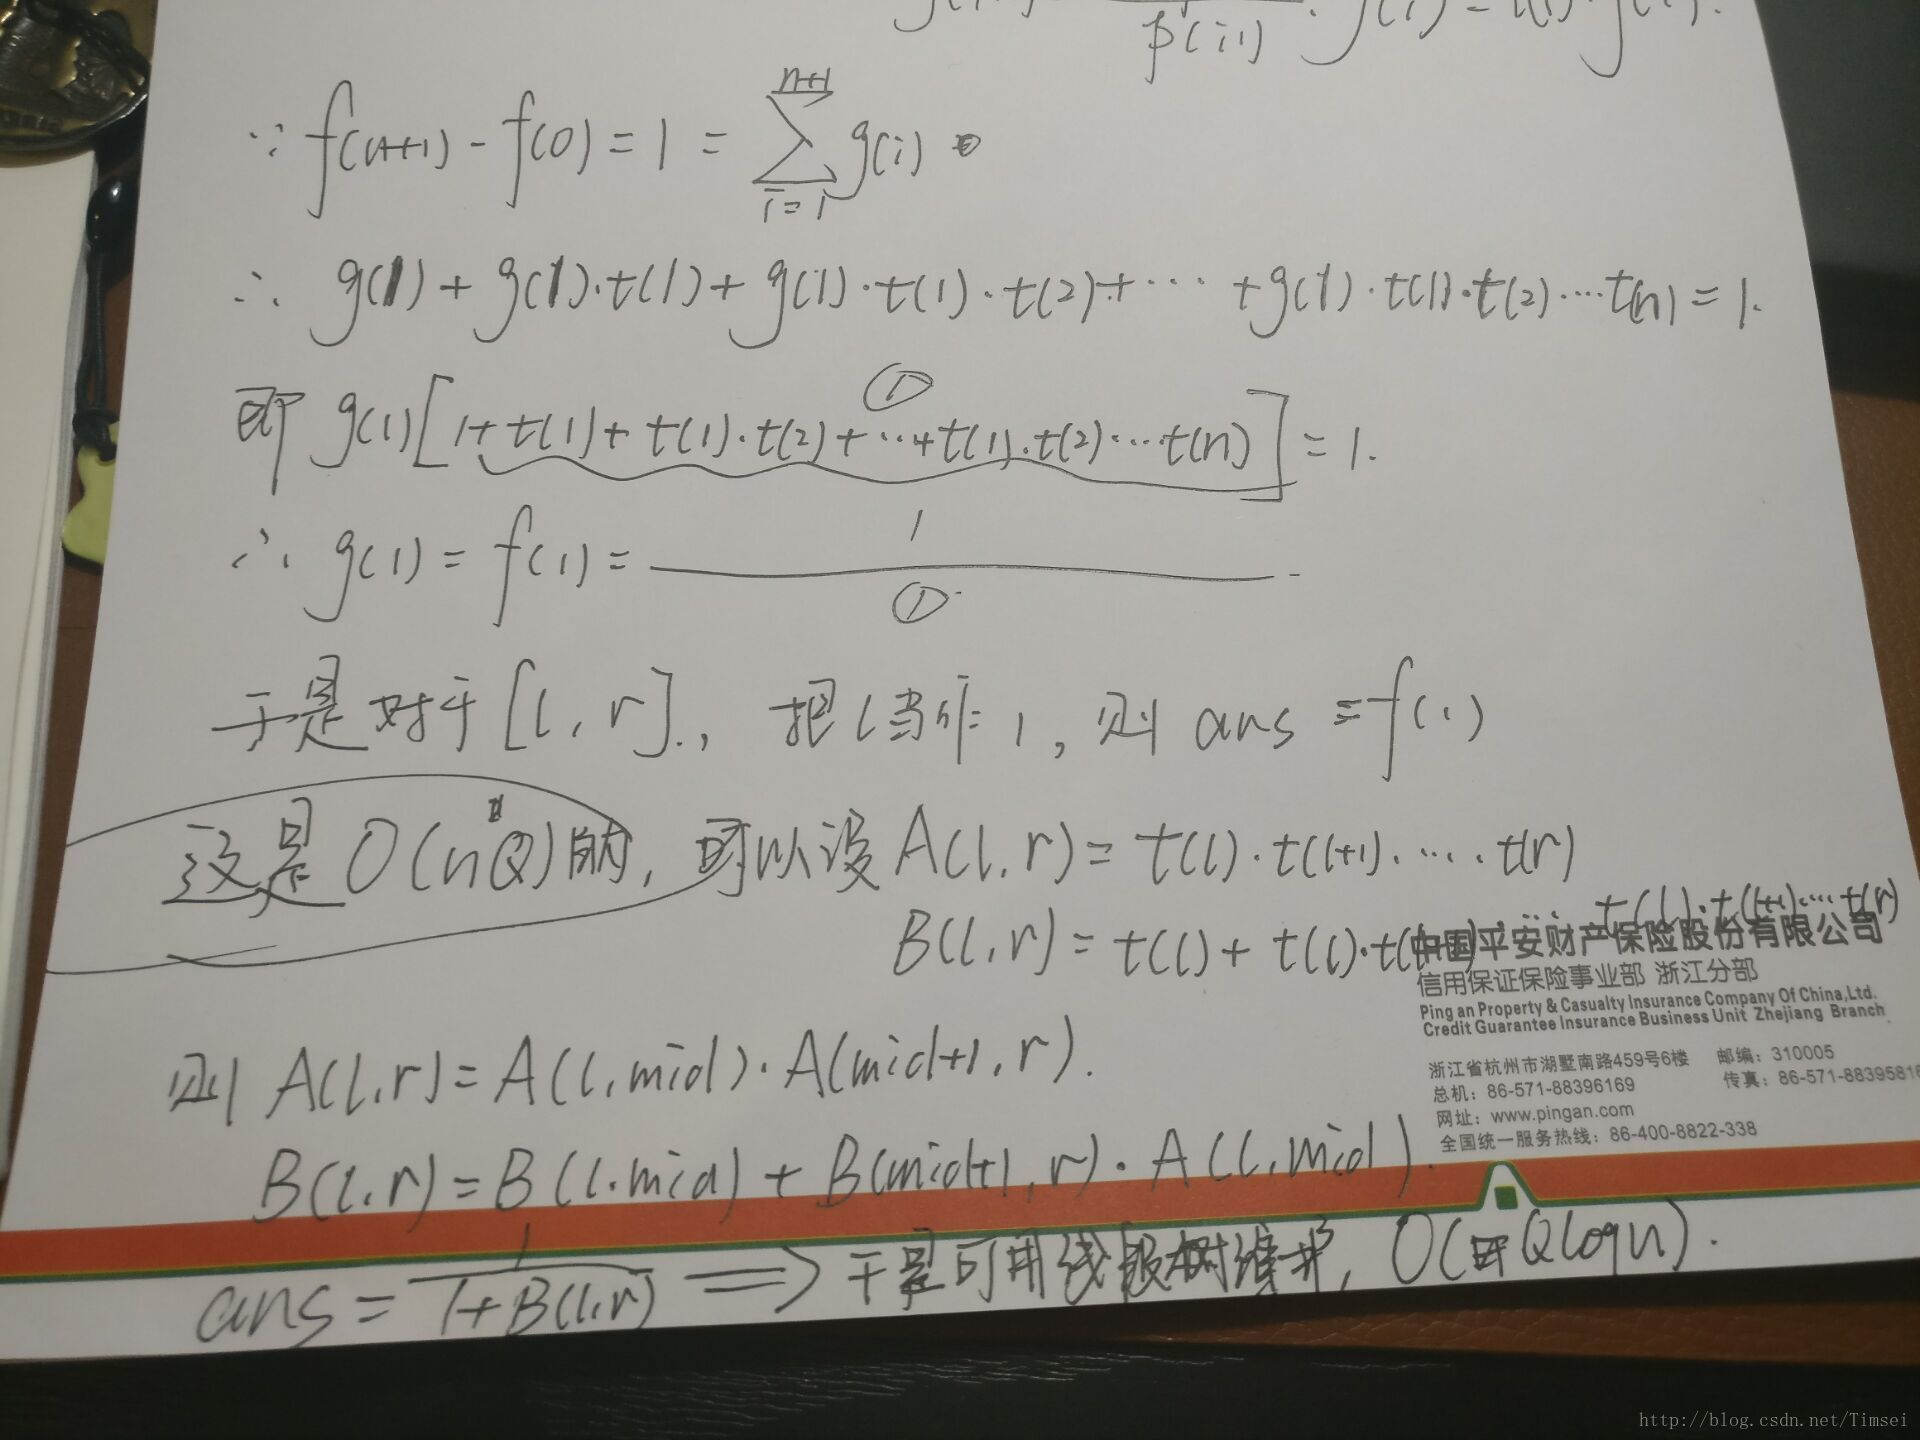 p(i)
∵ f(n+1) - f(0) = 1 = ∑_{i=1}^{n+1} g(i)
∴ g(1) + g(1)·t(1) + g(1)·t(1)·t(2) + ··· + g(1)·t(1)·t(2)····t(n) = 1.
①
即 g(1)[1 + t(1) + t(1)·t(2) + ··· + t(1)·t(2)····t(n)] = 1.
∴ g(1) = f(1) = 1/①.
于是对于[l, r]., 把l当作1, 则 ans = f(1)
这是O(nQ)的, 可以设 A(l, r) = t(l)·t(l+1)·....·t(r)
B(l, r) = t(l) + t(l)·t(l+1) ... t(l)·t(l+1)···t(r)
中国平安财产保险股份有限公司
信用保证保险事业部 浙江分部
Ping an Property & Casualty Insurance Company Of China,Ltd.
Credit Guarantee Insurance Business Unit Zhejiang Branch
浙江省杭州市湖墅南路459号6楼 邮编：310005
总机：86-571-88396169 传真：86-571-8839581
网址：www.pingan.com
全国统一服务热线：86-400-8822-338
则 A(l, r) = A(l, mid)·A(mid+1, r).
B(l, r) = B(l, mid) + B(mid+1, r)·A(l, mid).
ans = 1/(1+B(l, r)) ⟹ 于是可用线段树维护, O(Qlogn).
http://blog.csdn.net/Timsei